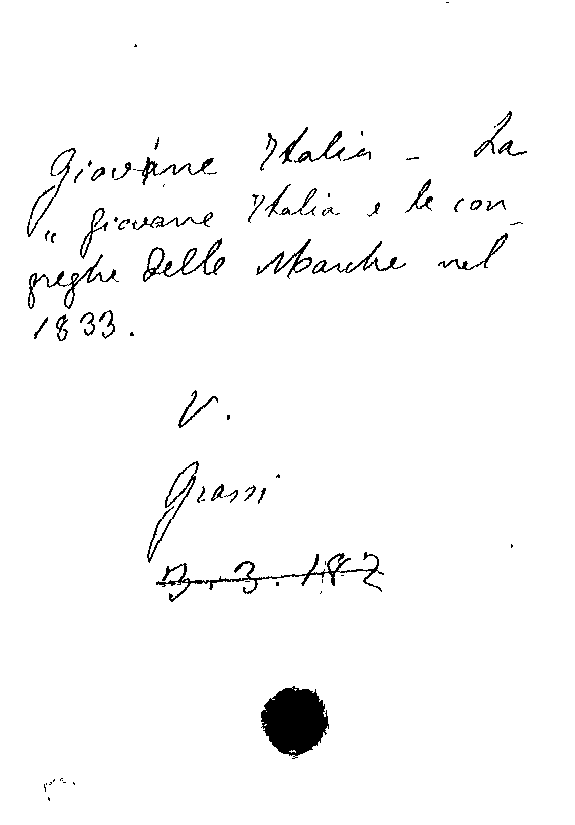 Giovine Italia - La
"Giovane Italia e le con-
greghe delle Marche nel
1833.
V.
Grassi
B. 3. 182